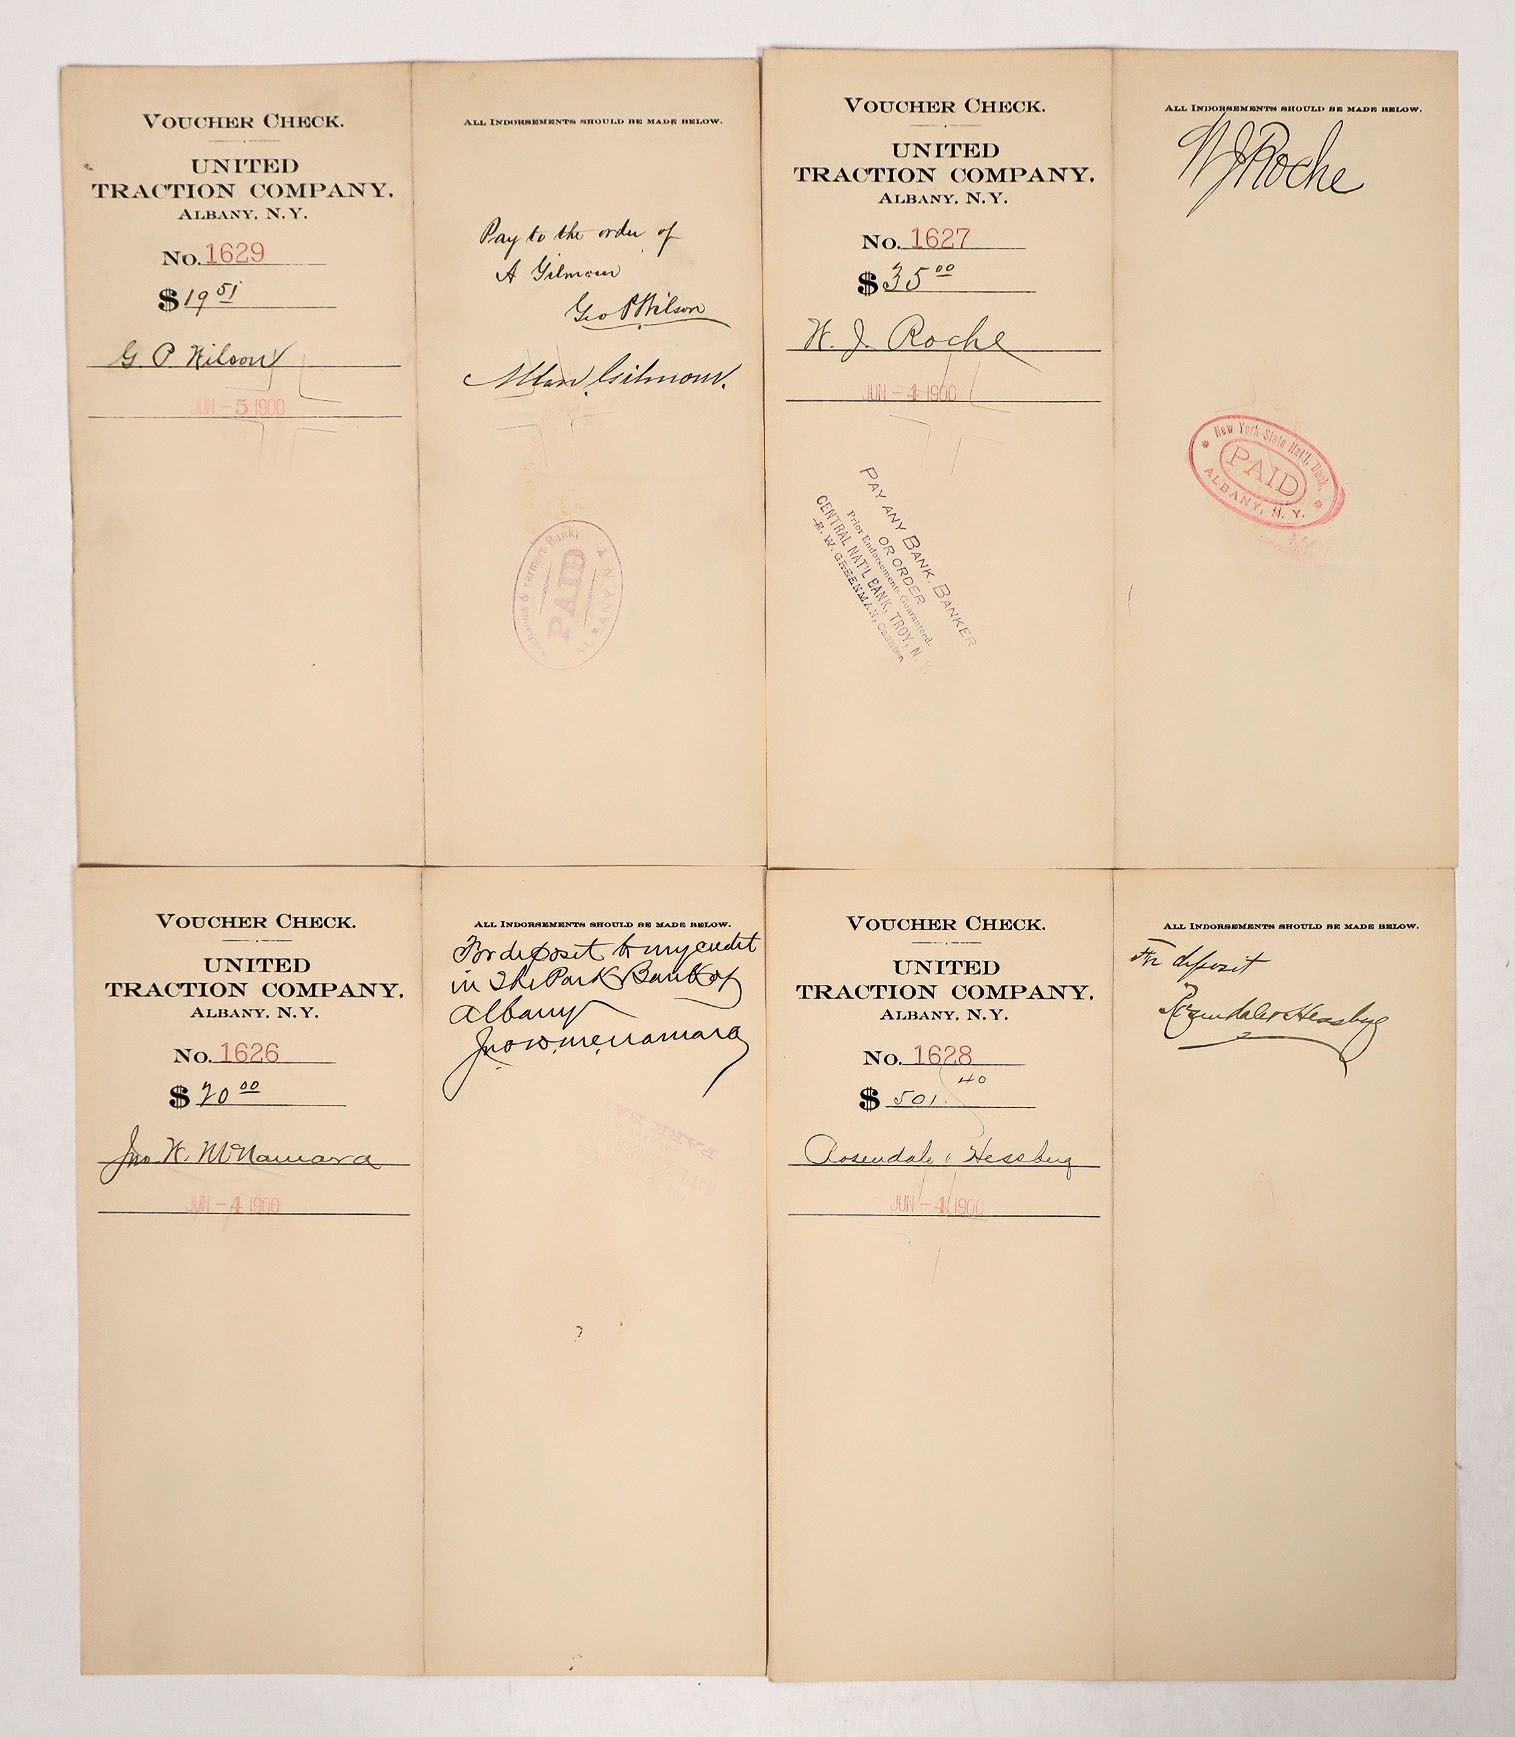 VOUCHER CHECK.
UNITED
TRACTION COMPANY.
ALBANY, N.Y.
No. 1629
$ 19 51
G. P. Wilson
JUN - 5 1900
ALL INDORSEMENTS SHOULD BE MADE BELOW.
Pay to the order of
A Gilmour
Geo P Wilson
Allan Gilmour.
Mechanics & Farmers Bank,
PAID
ALBANY
VOUCHER CHECK.
UNITED
TRACTION COMPANY.
ALBANY, N.Y.
No. 1627
$ 35 00
W. J. Roche
JUN - 4 1900
PAY ANY BANK, BANKER
OR ORDER
Prior Endorsements Guaranteed.
CENTRAL NAT'L BANK, TROY, N.Y.
E. W. GREENMAN, Cashier
ALL INDORSEMENTS SHOULD BE MADE BELOW.
W J Roche
New York State Nat'l. Bank,
PAID
ALBANY, N.Y.
VOUCHER CHECK.
UNITED
TRACTION COMPANY.
ALBANY, N.Y.
No. 1626
$ 20 00
Jno W. McNamara
JUN - 4 1900
ALL INDORSEMENTS SHOULD BE MADE BELOW.
For deposit to my credit
in The Park Bank of
Albany
Jno W. McNamara
VOUCHER CHECK.
UNITED
TRACTION COMPANY.
ALBANY, N.Y.
No. 1628
$ 501. 40
Rosendale & Hessberg
JUN - 4 1900
ALL INDORSEMENTS SHOULD BE MADE BELOW.
For deposit
Rosendale & Hessberg